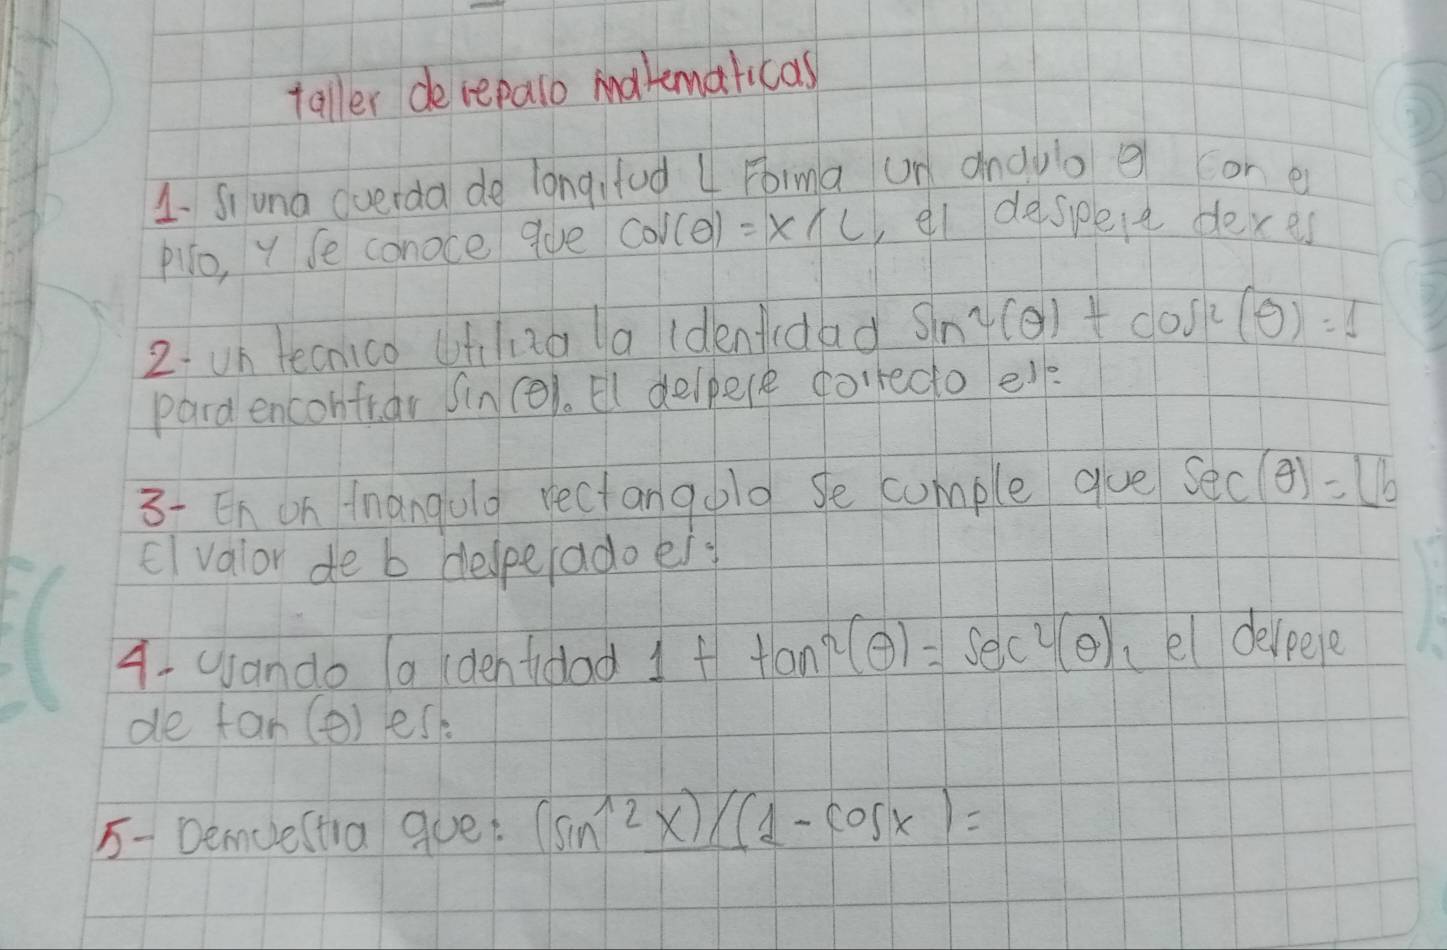 taller de repaso matematicas
1- Si una cuerda de longitud L Forma un angulo θ con el
piso, y se conoce que cos(θ) = x/L, el despeje de x es
2- un tecnico utiliza la identidad Sin²(θ) + cos²(θ) = 1
para encontrar Sin(θ). El despeje correcto es:
3- En un triangulo rectangulo se cumple que Sec(θ) = L/b
El valor de b despejado es:
4- Usando la identidad 1 + tan²(θ) = Sec²(θ), el despeje
de tan(θ) es:
5- Demuestra que: (sin^2 x)/(1 - cosx) =